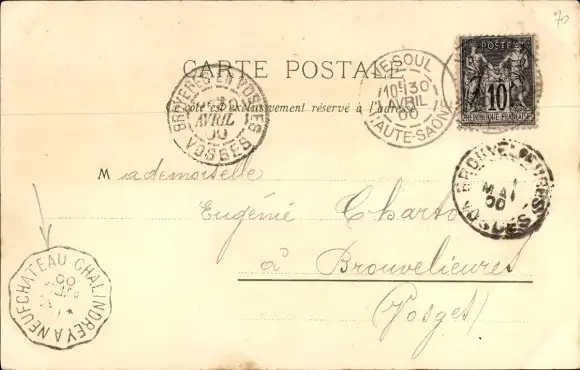 70
CARTE POSTALE
Ce côté est exclusivement réservé à l'adresse
POSTE
10
REPUBLIQUE FRANÇAISE
VESOUL
10 30
AVRIL
00
HAUTE-SAONE
BRUYERES EN VOSGES
AVRIL
00
VOSGES
BROUVELIEURES
MAI
00
VOSGES
Mademoiselle
Eugénie
à Brouvelieures
(Vosges)
NEUFCHATEAU
CHALINDREY A
00